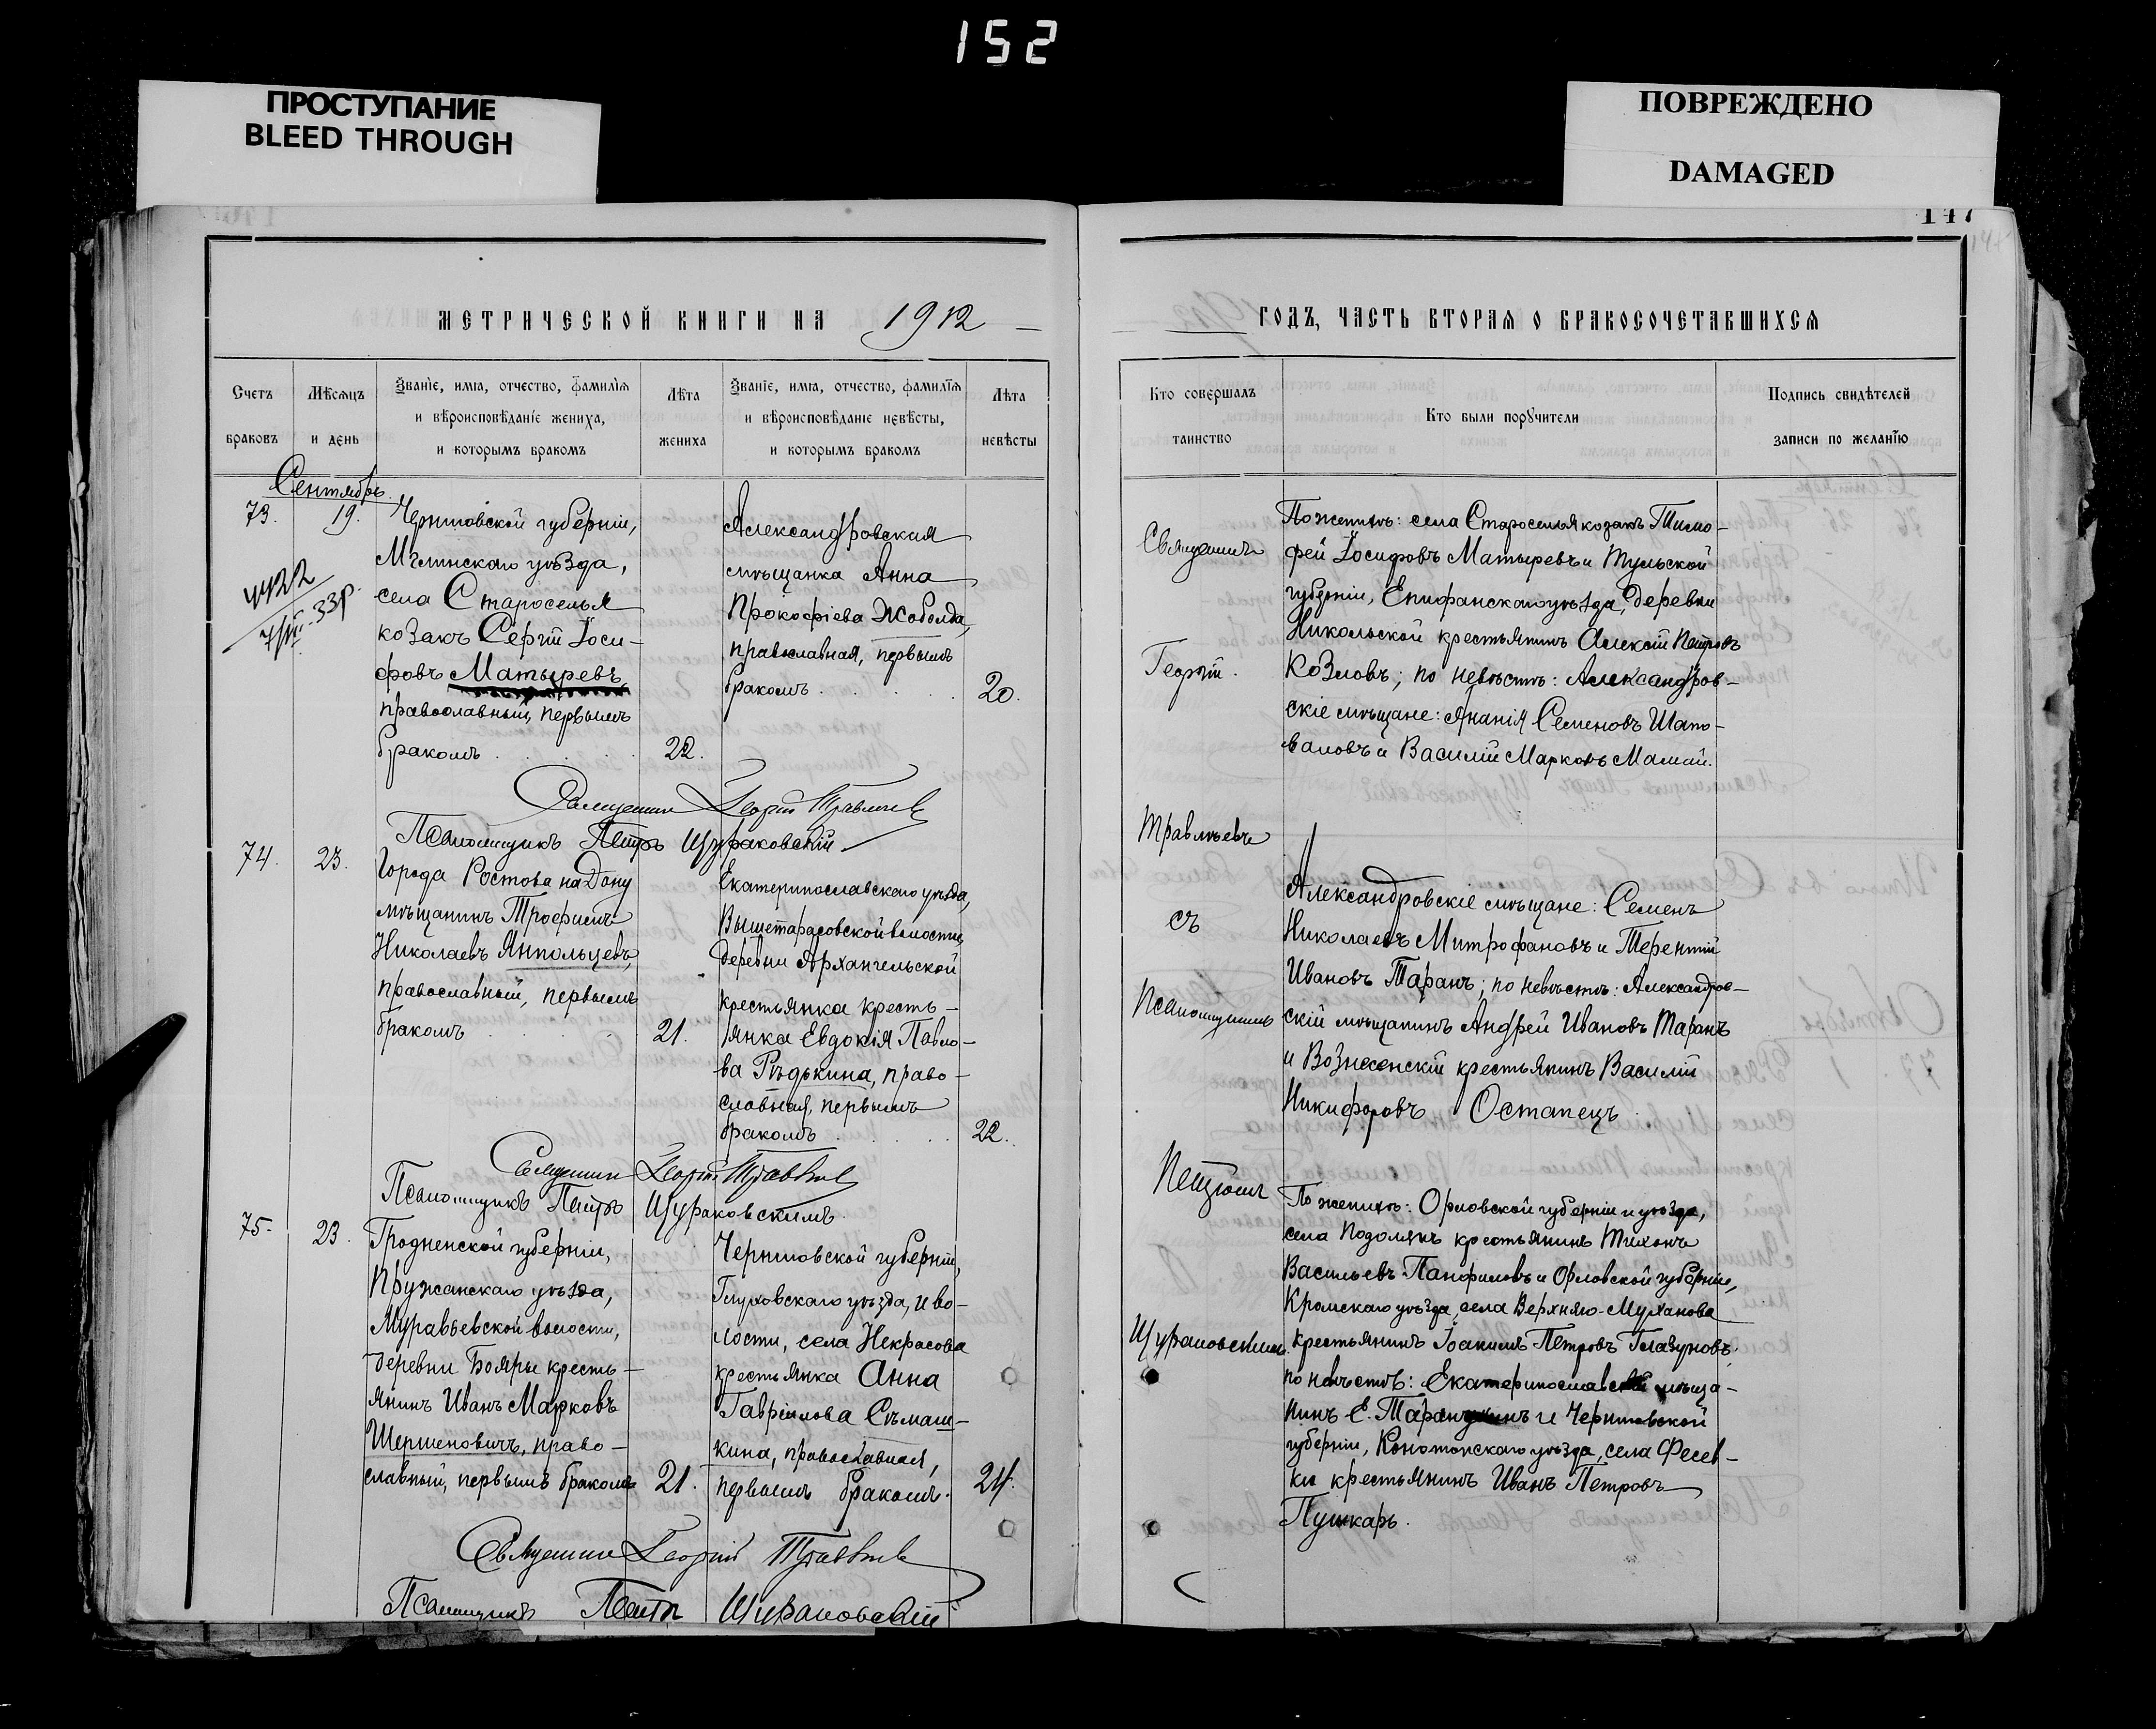 152
ПРОСТУПАНИЕ
BLEED THROUGH
ПОВРЕЖДЕНО
DAMAGED
147
МЕТРИЧЕСКОЙ КНИГИ НА 1912
Счетъ браковъ
Мѣсяцъ и день
Званіе, имя, отчество, фамилія
и вѣроисповѣданіе жениха,
и которымъ бракомъ
Лѣта жениха
Званіе, имя, отчество, фамилія
и вѣроисповѣданіе невѣсты,
и которымъ бракомъ
Лѣта невѣсты
Сентябрь
73. 19.
4422
Черниговской губерніи,
Мглинскаго уѣзда,
села Староселья
козакъ Сергій Іоси-
фовъ Матыревъ,
православный, первымъ
бракомъ 22.
Александровская
мѣщанка Анна
Прокофіева Жоболда,
православная, первымъ
бракомъ 20.
Священникъ Георгій Травлѣевъ
Псаломщикъ Петръ Щураковскій
74. 23.
Города Ростова на Дону
мѣщанинъ Трофимъ
Николаевъ Янпольцевъ,
православный, первымъ
бракомъ 21.
Екатеринославскаго уѣзда,
Вышетарасовской волости,
деревни Архангельской
крестьянка кресть-
янка Евдокія Павло-
ва Рѣдькина, право-
славная, первымъ
бракомъ 22.
Священникъ Георгій Травлѣевъ
Псаломщикъ Петръ Щураковскимъ.
75. 23.
Гродненской губерніи,
Пружанскаго уѣзда,
Муравьевской волости,
деревни Бояры кресть-
янинъ Иванъ Марковъ
Шершеновичъ, право-
славный, первымъ бракомъ 21.
Черниговской губерніи,
Глуховскаго уѣзда, и во-
лости, села Некрасова
крестьянка Анна
Гавріилова Сѣмаш-
кина, православная,
первымъ бракомъ. 24.
Священникъ Георгій Травлѣевъ
Псаломщикъ Петръ Щураковскій
ГОДЪ, ЧАСТЬ ВТОРАЯ О БРАКОСОЧЕТАВШИХСЯ
Кто совершалъ таинство
Кто были поручители
Подпись свидѣтелей
записи по желанію
Священникъ
Георгій.
Травлѣевъ
съ
Псаломщикомъ
Петромъ
Щураковскимъ.
По женихѣ: села Староселья козакъ Тимо-
фей Іосифовъ Матыревъ и Тульской
губерніи, Епифанскаго уѣзда, деревни
Никольской крестьянинъ Алексій Петровъ
Козловъ; по невѣстѣ: Александров-
скіе мѣщане: Ананія Семеновъ Шапо-
валовъ и Василій Марковъ Малый.
Александровскіе мѣщане: Семенъ
Николаевъ Митрофановъ и Терентій
Ивановъ Таранъ; по невѣстѣ: Александров-
скій мѣщанинъ Андрей Ивановъ Таранъ
и Вознесенскій крестьянинъ Василій
Никифоровъ Остапецъ.
По женихѣ: Орловской губерніи и уѣзда,
села Подолянъ крестьянинъ Тихонъ
Васильевъ Панфиловъ и Орловской губерніи,
Кромскаго уѣзда, села Верхняго-Муханова
крестьянинъ Іоакимъ Петровъ Глазуновъ;
по невѣстѣ: Екатеринославскій мѣща-
нинъ Е. и Черниговской
губерніи, Конотопскаго уѣзда, села Фесев-
ки крестьянинъ Иванъ Петровъ
Пушкарь.